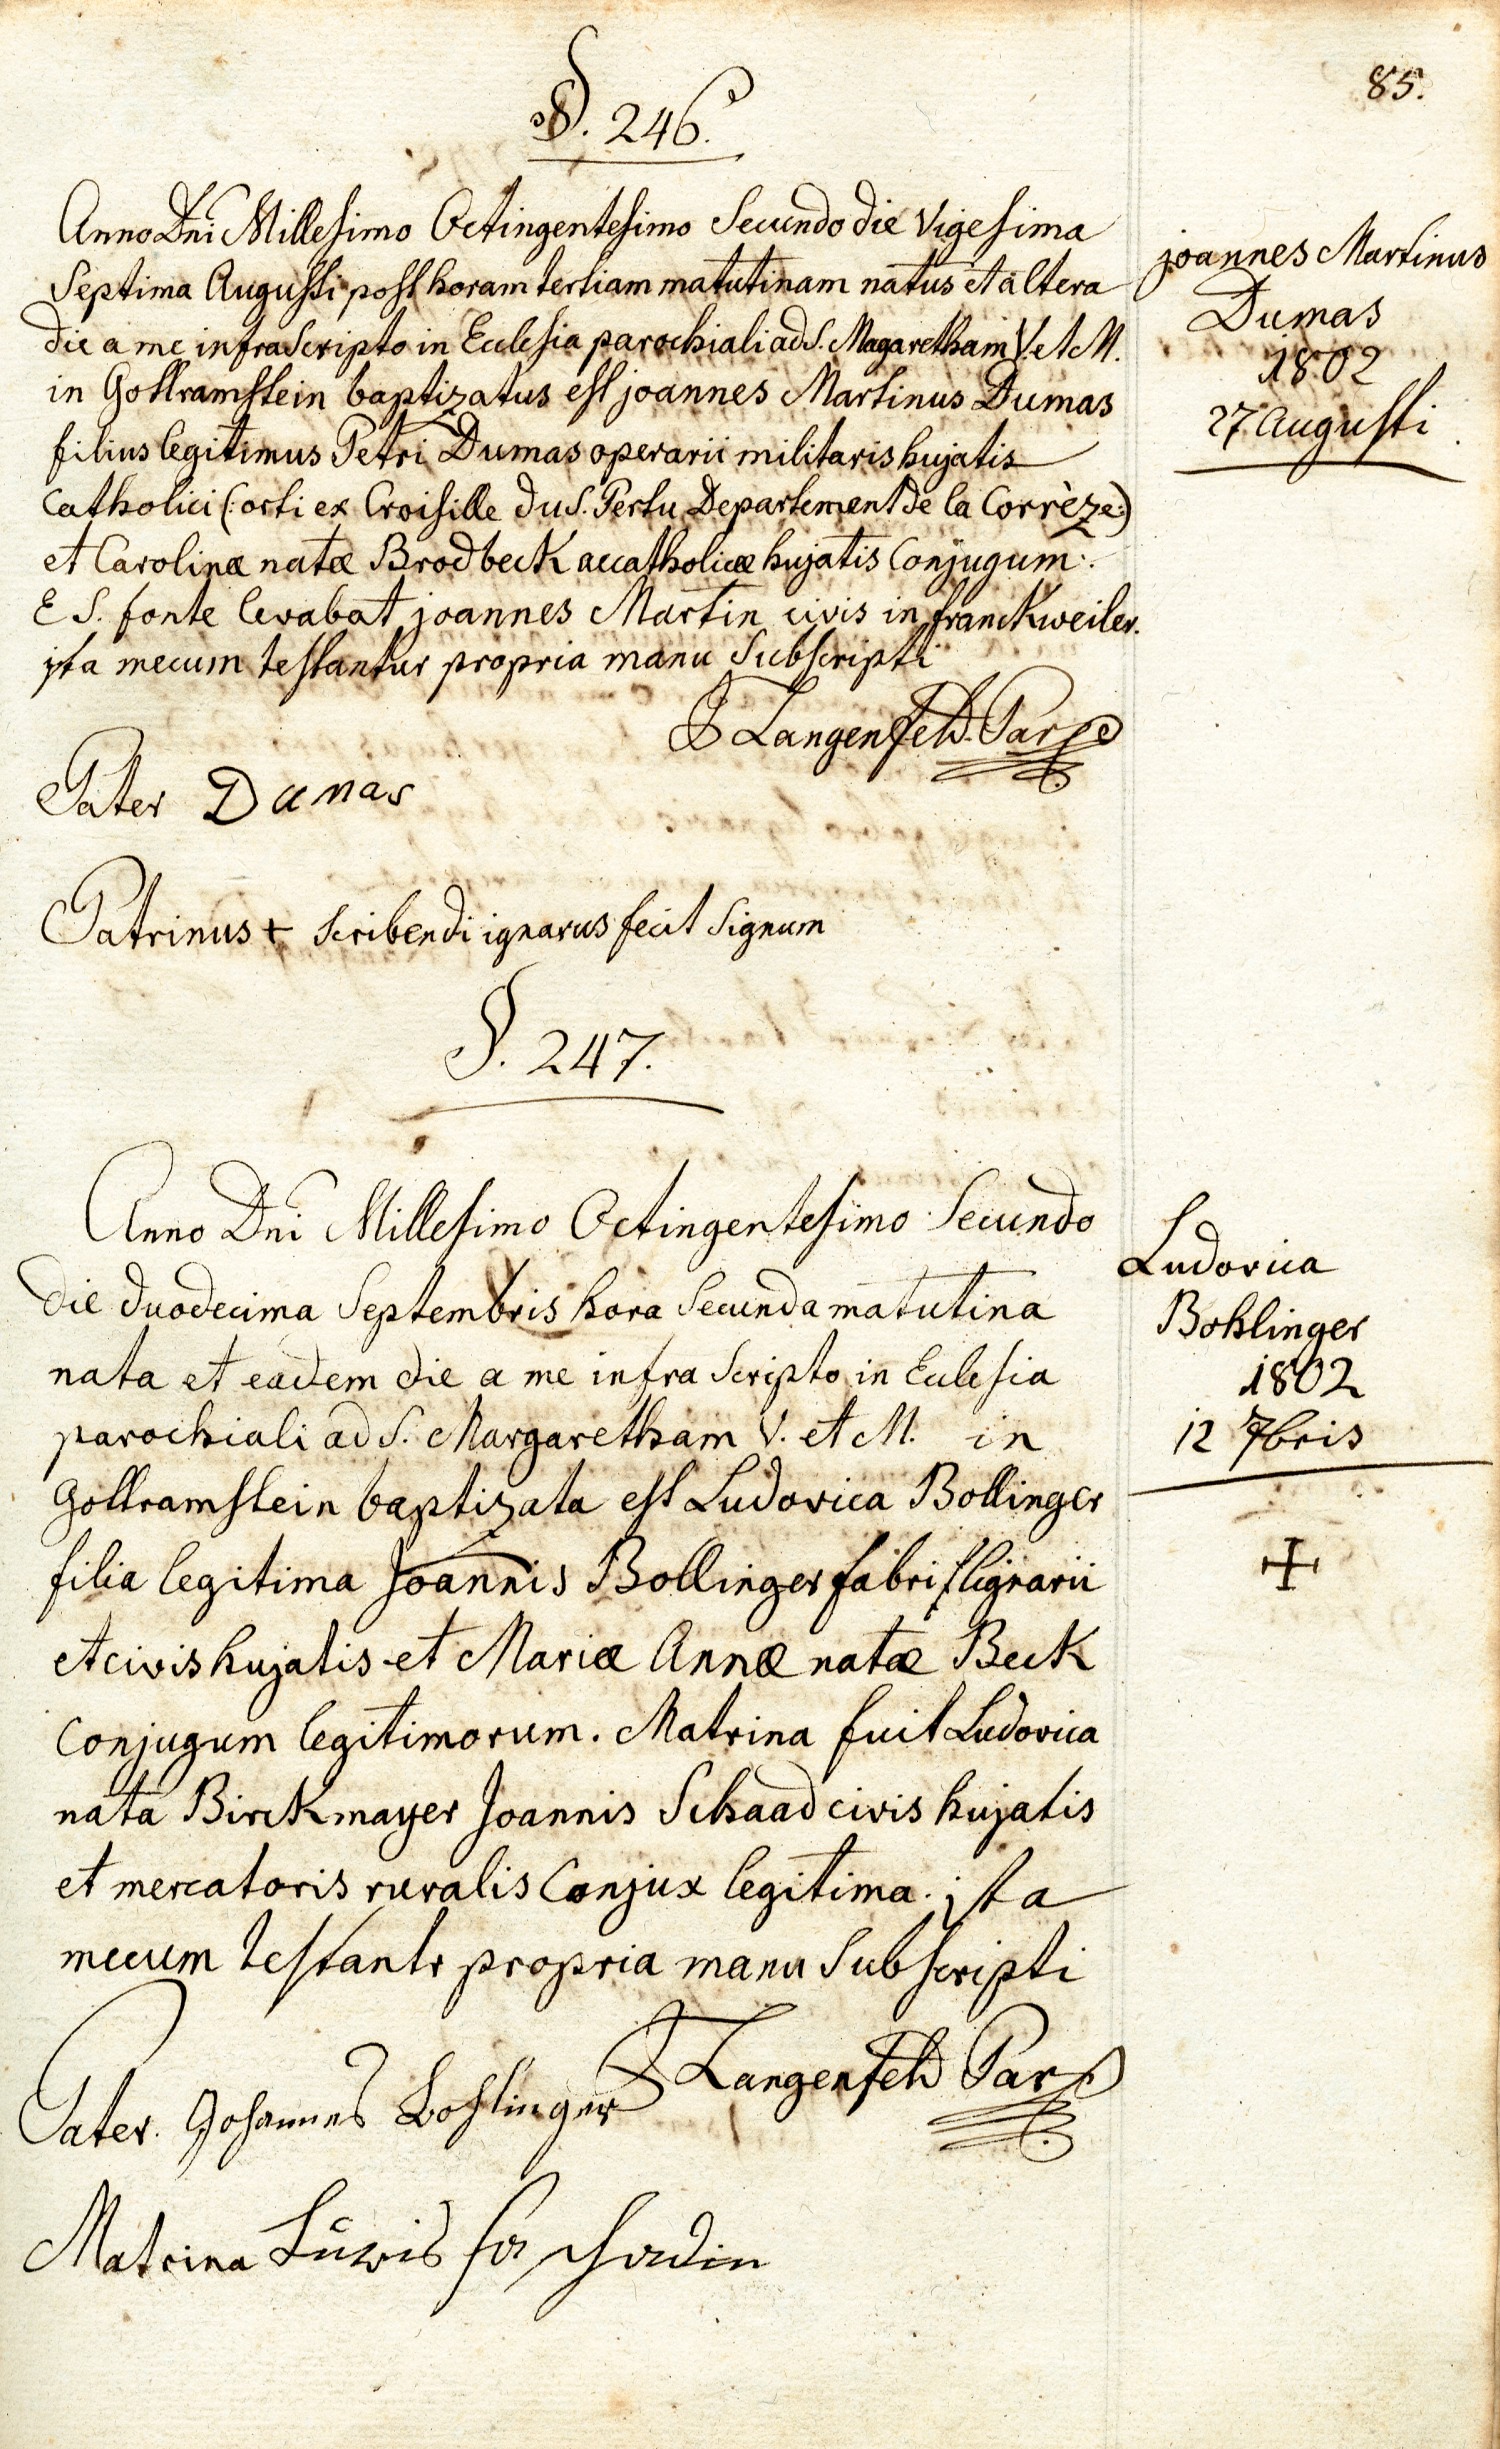 85.
§. 246.
Anno Dni Millesimo Octingentesimo Secundo die Vigesima
Septima Augusti post horam tertiam matutinam natus et altera
die a me infra Scripto in Ecclesia parochiali ad S. Magaretham V. et M.
in Gottramstein baptizatus est joannes Martinus Dumas
filius legitimus Petri Dumas operarii militaris hujatis
Catholici (: orti ex Croisille du S. Pertu Departement de la Corrèze :)
et Carolinæ natæ Brodbeck accatholicæ hujatis Conjugum:
E S. fonte levabat joannes Martin civis in franckweiler.
jta mecum testantur propria manu Subscripti
J Langenfeld. Par
Pater Dumas
Patrinus + Scribendi ignarus fecit Signum
joannes Martinus
Dumas
1802
27 Augusti
§. 247.
Anno Dni Millesimo Octingentesimo Secundo
die duodecima Septembris hora Secunda matutina
nata et eadem die a me infra Scripto in Ecclesia
parochiali ad S. Margaretham V. et M. in
Gottramstein baptizata est Ludovica Bollinger
filia legitima Joannis Bollinger fabri lignarii
et civis hujatis et Mariæ Annæ natæ Beck
Conjugum legitimorum. Matrina fuit Ludovica
nata Birckmayer Joannis Schaad civis hujatis
et mercatoris ruralis Conjux legitima. jta
mecum testantr propria manu Subscripti
J Langenfeld Par
Pater. Johannes Bohlinger
Matrina Luwis schadin
Ludovica
Bohlinger
1802
12 7bris
+